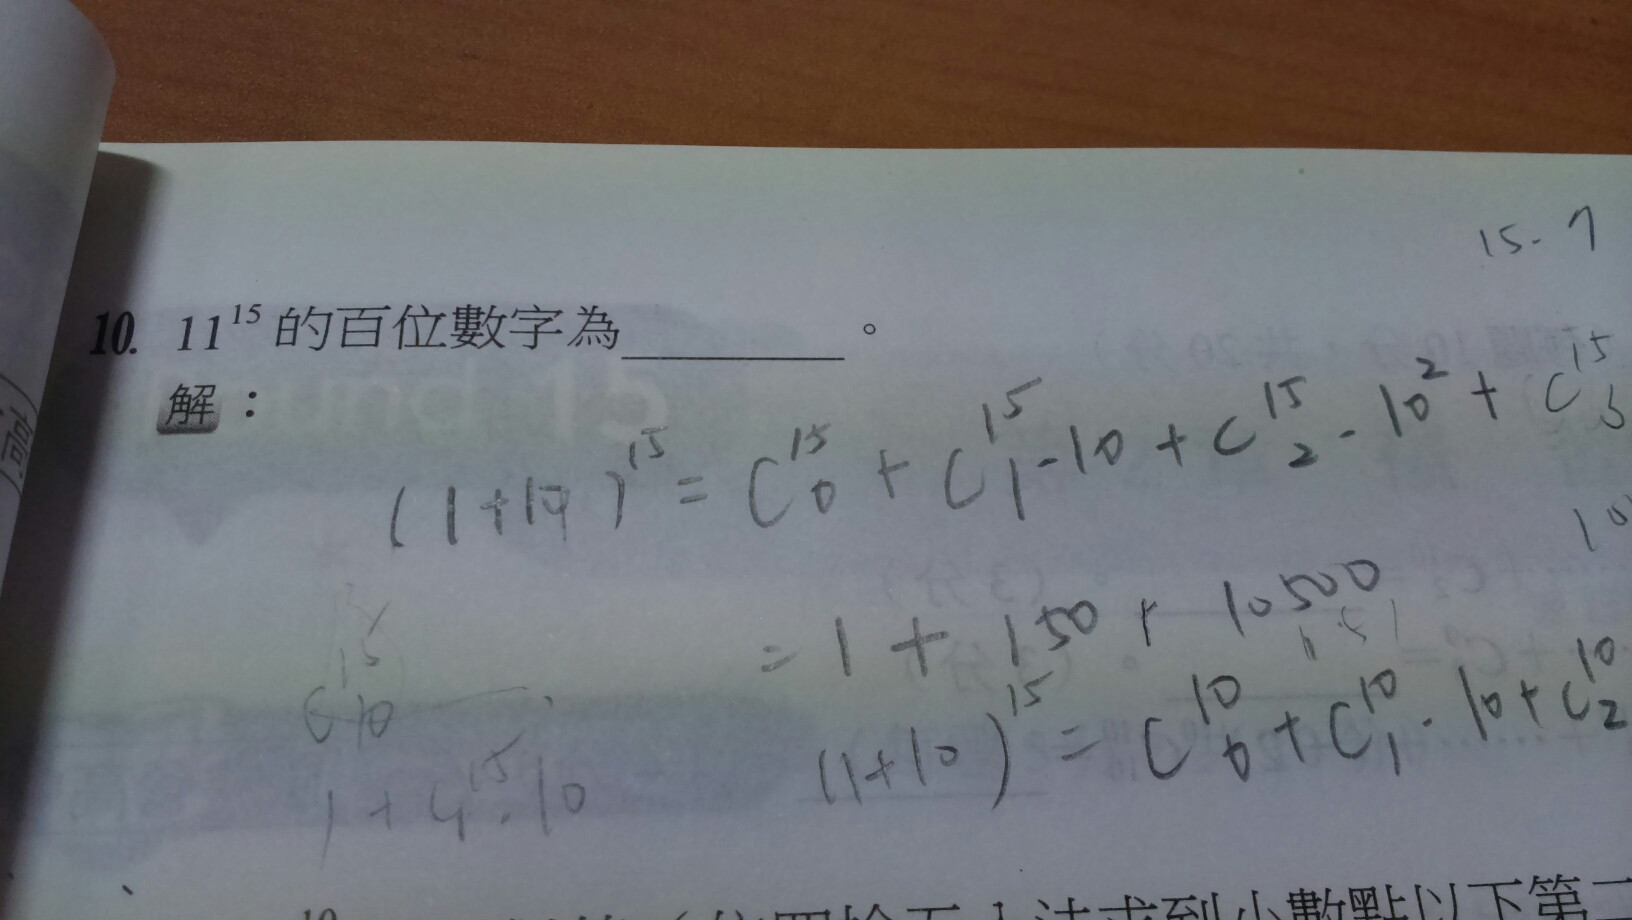 15-7
10. 11^15 的百位數字為________。
解：
(1+10)^15 = C^15_0 + C^15_1 - 10 + C^15_2 - 10^2 + C^15_3
10
= 1 + 150 + 10500
151
(1+10)^15 = C^10_0 + C^10_1 · 10 + C^10_2
15
10
1 + C^15_1 · 10
10